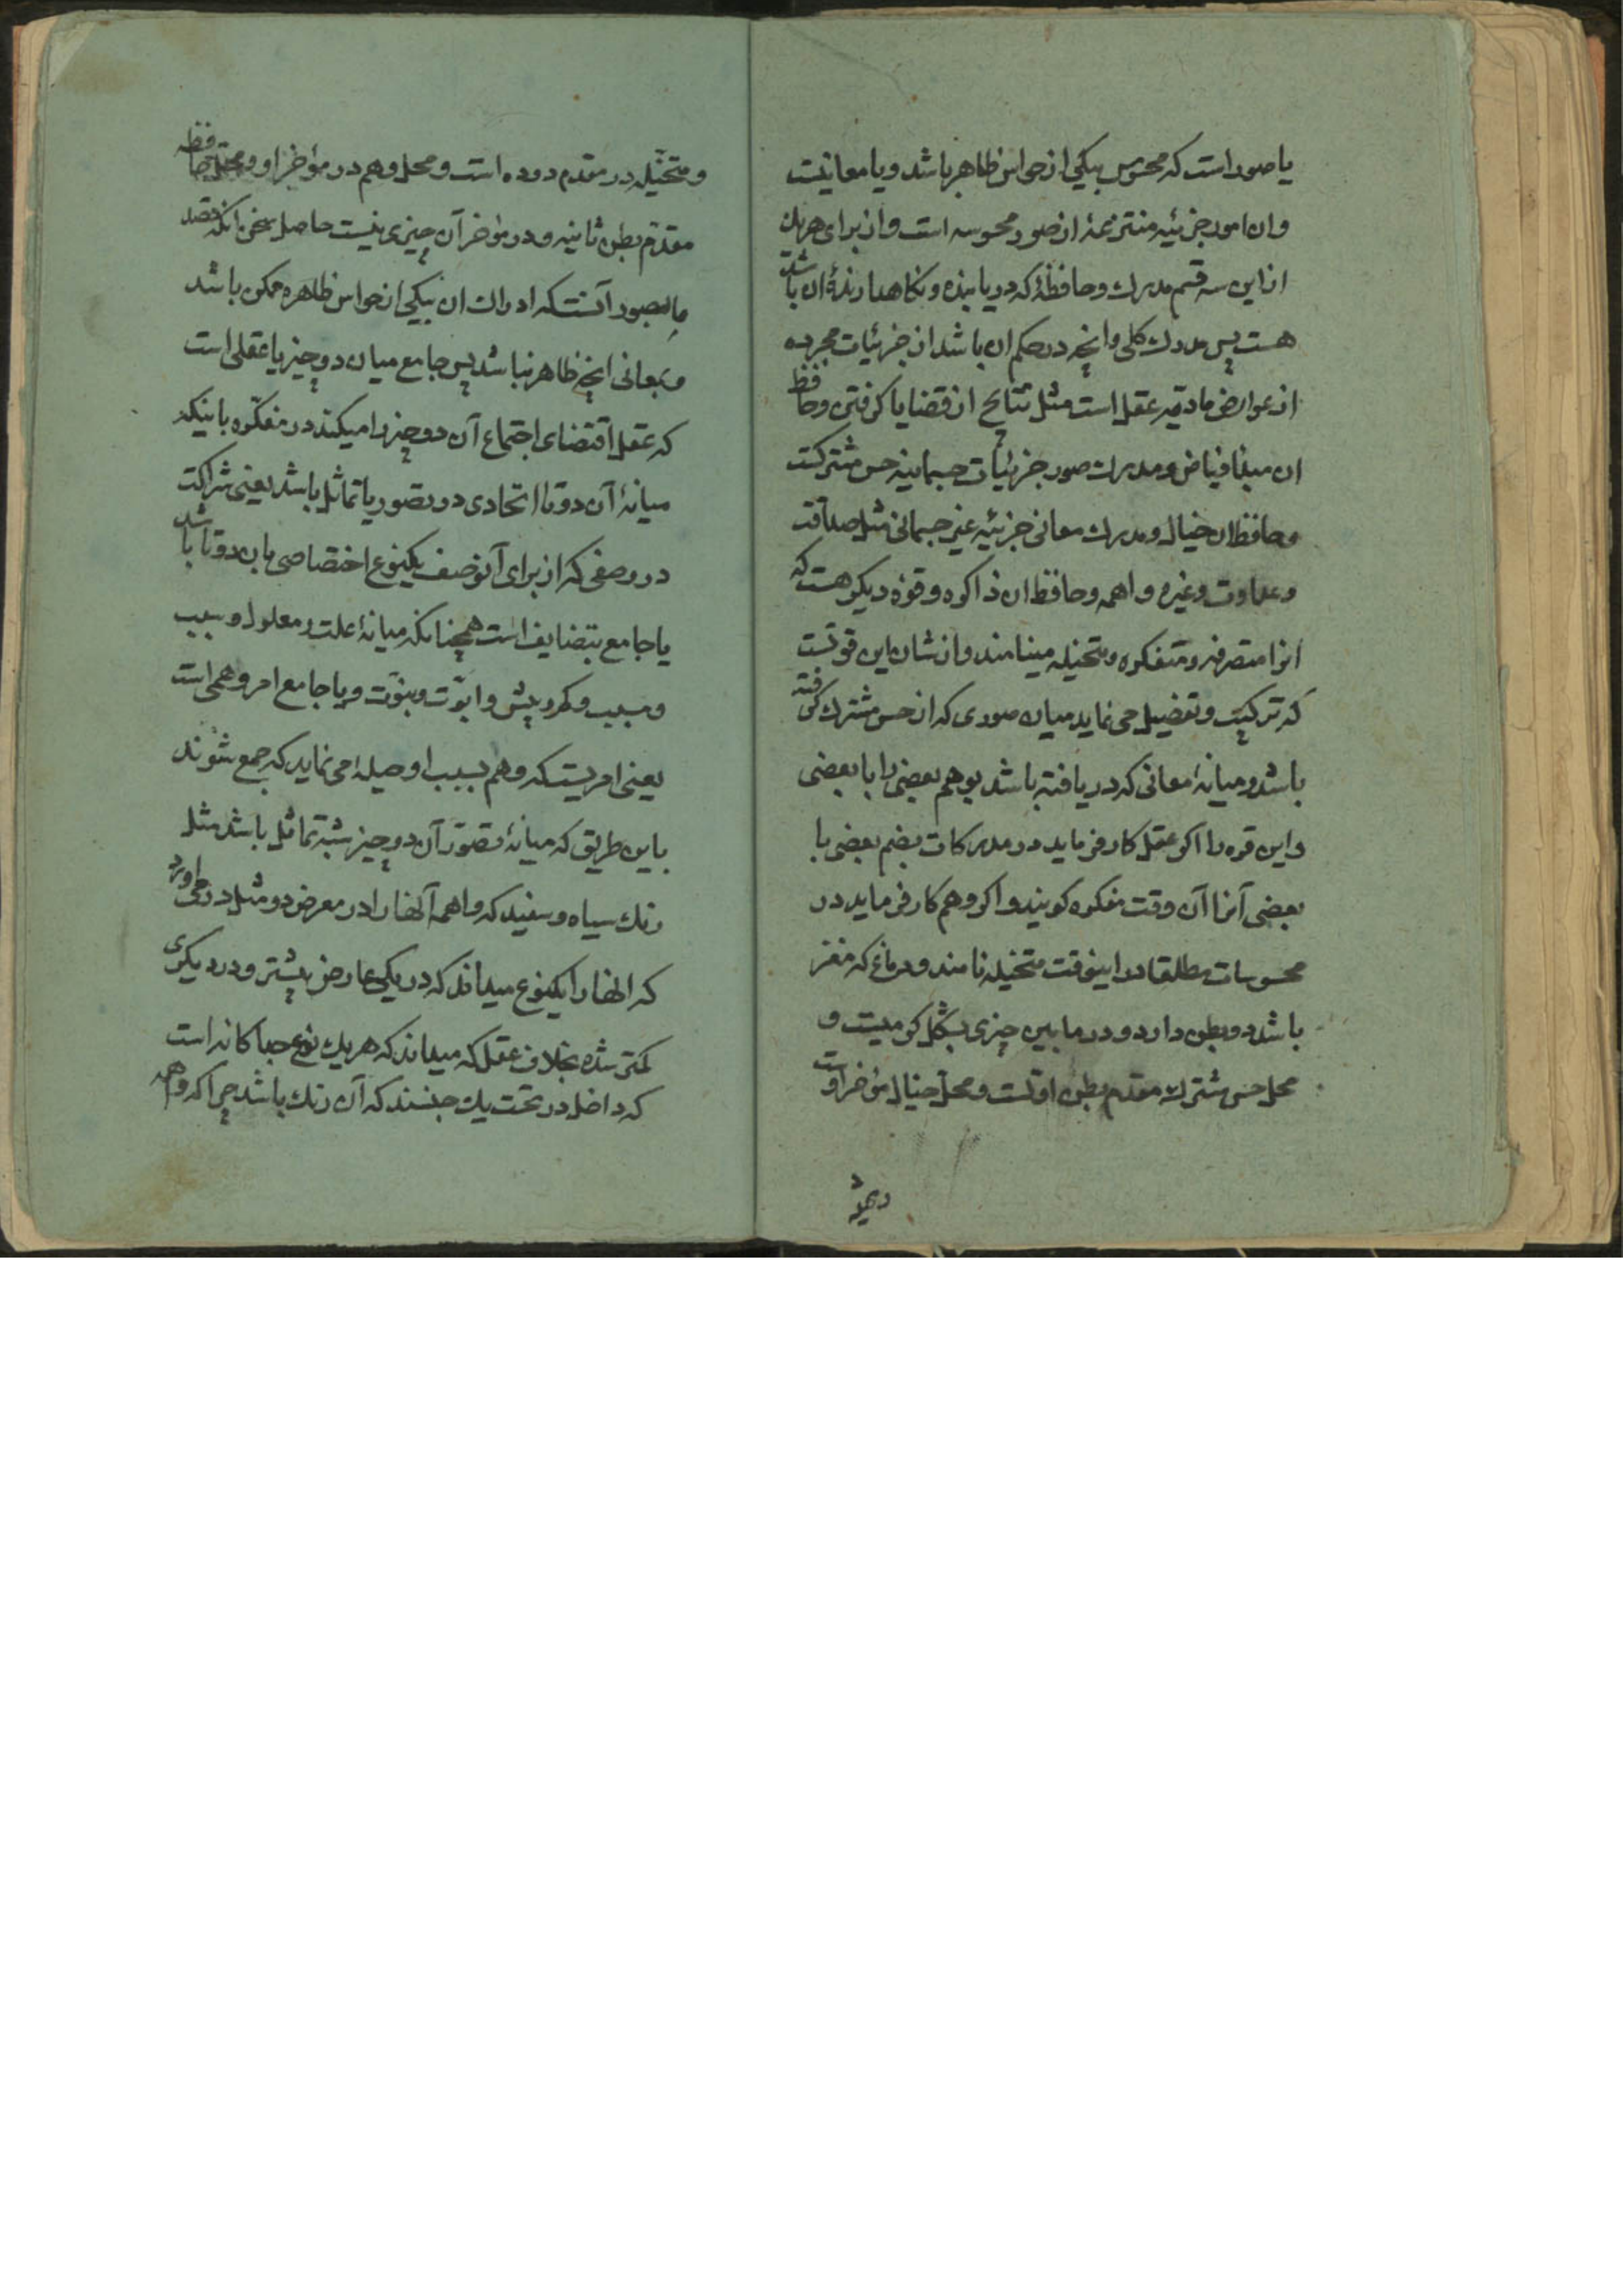 یا صور است که محسوس بیکی از حواس ظاهر باشد و یا معانیست
وان امور جزئیه منتزعهٔ از صور محسوسه است و از برای هریك
از این سه قسم مدرك و حافظهٔ که دریابنده و نکاهدارندهٔ ان باشد
هست پس مدرك کلی و انچه در حکم ان باشد از جزئیات مجرده
از عوارض مادیه عقل است مثل نتایج از قضایا کرفتن و حافظ
ان مبدا فیاض و مدرك صور جزئیات جسمانیه حس مشترکست
و حافظ ان خیال و مدرك معانی جزئیه غیر جسمانی مثل صداقت
و عداوت و غیره واهمه و حافظ ان ذاکره و قوهٔ دیکر هست که
انرا متصرفه و متفکره و متخیله مینامند و از شان این قوتست
که ترکیب و تفصیل می نماید میان صوری که از حس مشترك کرفته
باشد و میانهٔ معانی که دریافته باشد بوهم بعضی را با بعضی
و این قوه را اکر عقل کار فرماید در مدرکات بضم بعضی با
بعضی آنرا آن وقت مفکره کویند و اکر وهم کار فرماید در
محسوسات مطلقا در اینوقت متخیله نامند و دماغ که مغز
باشد دو بطن دارد و در مابین چیزی بشکل کرمیست و
محل حس مشترك مقدم بطن اولست و محل خیال مؤخر اوست
و متخیّله در مقدم دوده است و محل وهم در مؤخر او و محل حافظه
مقدّم بطن ثانیه و در مؤخر آن چیزی نیست حاصل سخن انکه قصد
ما بصور آنست که ادراك ان بیکی از حواس ظاهره ممکن باشد
و بمعانی انچه ظاهر نباشد پس جامع میان دو چیز یا عقلی است
که عقل اقتضای اجتماع آن دو چیز را میکند در مفکّره باینکه
میانهٔ آن دو تا اتحادی در تصور یا تماثل باشد یعنی شراکت
در وصفی که از برای آنوصف یکنوع اختصاصی بان دو تا باشد
یا جامع بتضایف است همچنانکه میانهٔ علت و معلول و سبب
و مسبب و کم و بیش و ابوّت و بنوّت و یا جامع امر وهمی است
یعنی امریست که وهم بسبب او حیله می نماید که جمع شوند
باین طریق که میانهٔ تصوّر آن دو چیز شبه تماثل باشد مثل
رنك سیاه و سفید که واهمه آنها را در معرض دو مثل درمی اورد
که انها را یکنوع میداند که در یکی عارض بیشتر و در دیکری
کمتر شده بخلاف عقل که میداند که هر یك نوع جدا کانه است
که داخل در تحت یك جنسند که آن رنك باشد چرا که واهمه